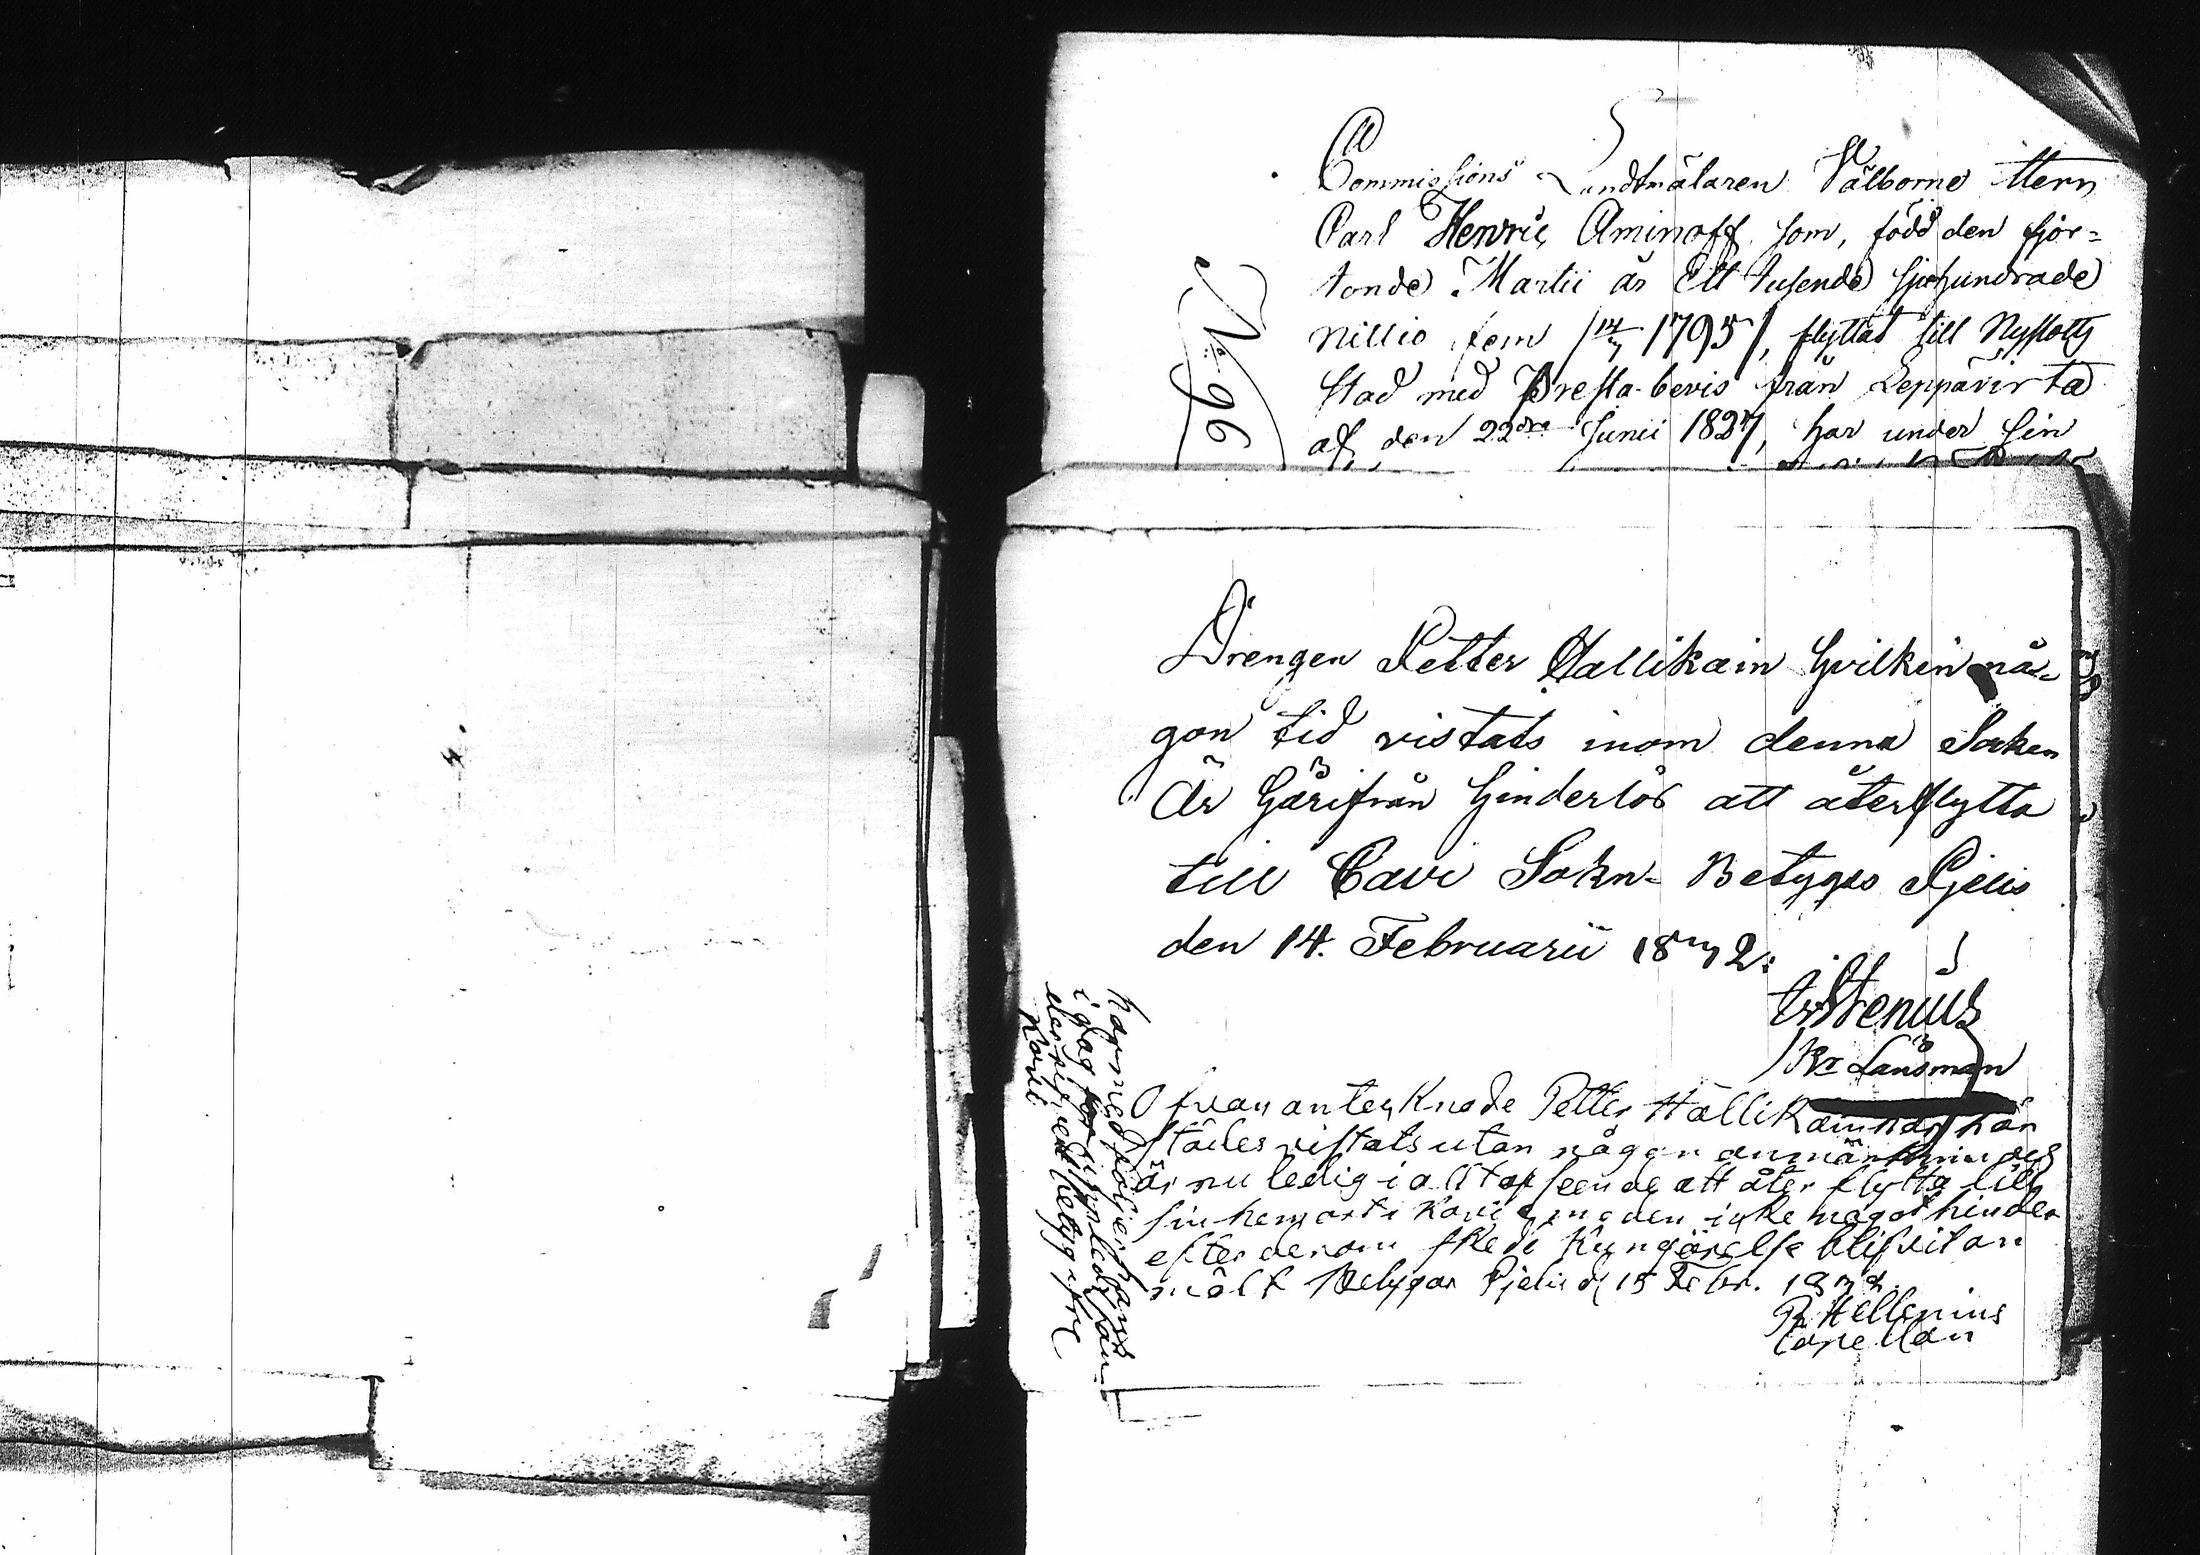 Commissions Landtmätaren Välborne Herr
Carl Henric Aminoff som, född den fjor=
tonde Martii år Ett tusende sjuhundrade
nittio fem /14/3 1795/, flyttat till Nyslotts
stad med Presta-bevis från Leppävirta
af den 22dra Junii 1827, har under sin
No 96
Drengen Petter Hallikain hvilken nå-
gon tid vistats inom denna Socken
Är härifrån hinderlös att återflytta
till Cavi Sokn- Betygas Pjelis
den 14. Februarii 1832.
Stenius
Kr Länsman
Ofvanantecknade Petter Hallikain har här
städes vistats utan någon anmärkning och
är nu ledig i allt afseende att åter flytta till
sin hemort i Kavi, emedan icke något hinder
efter derom skedd kungörelse blifvit an
mält Betygar Pjelis d 15 Febr. 1832.
P Hellenius
Capellan
härmed följer hans
i dag
Kavi